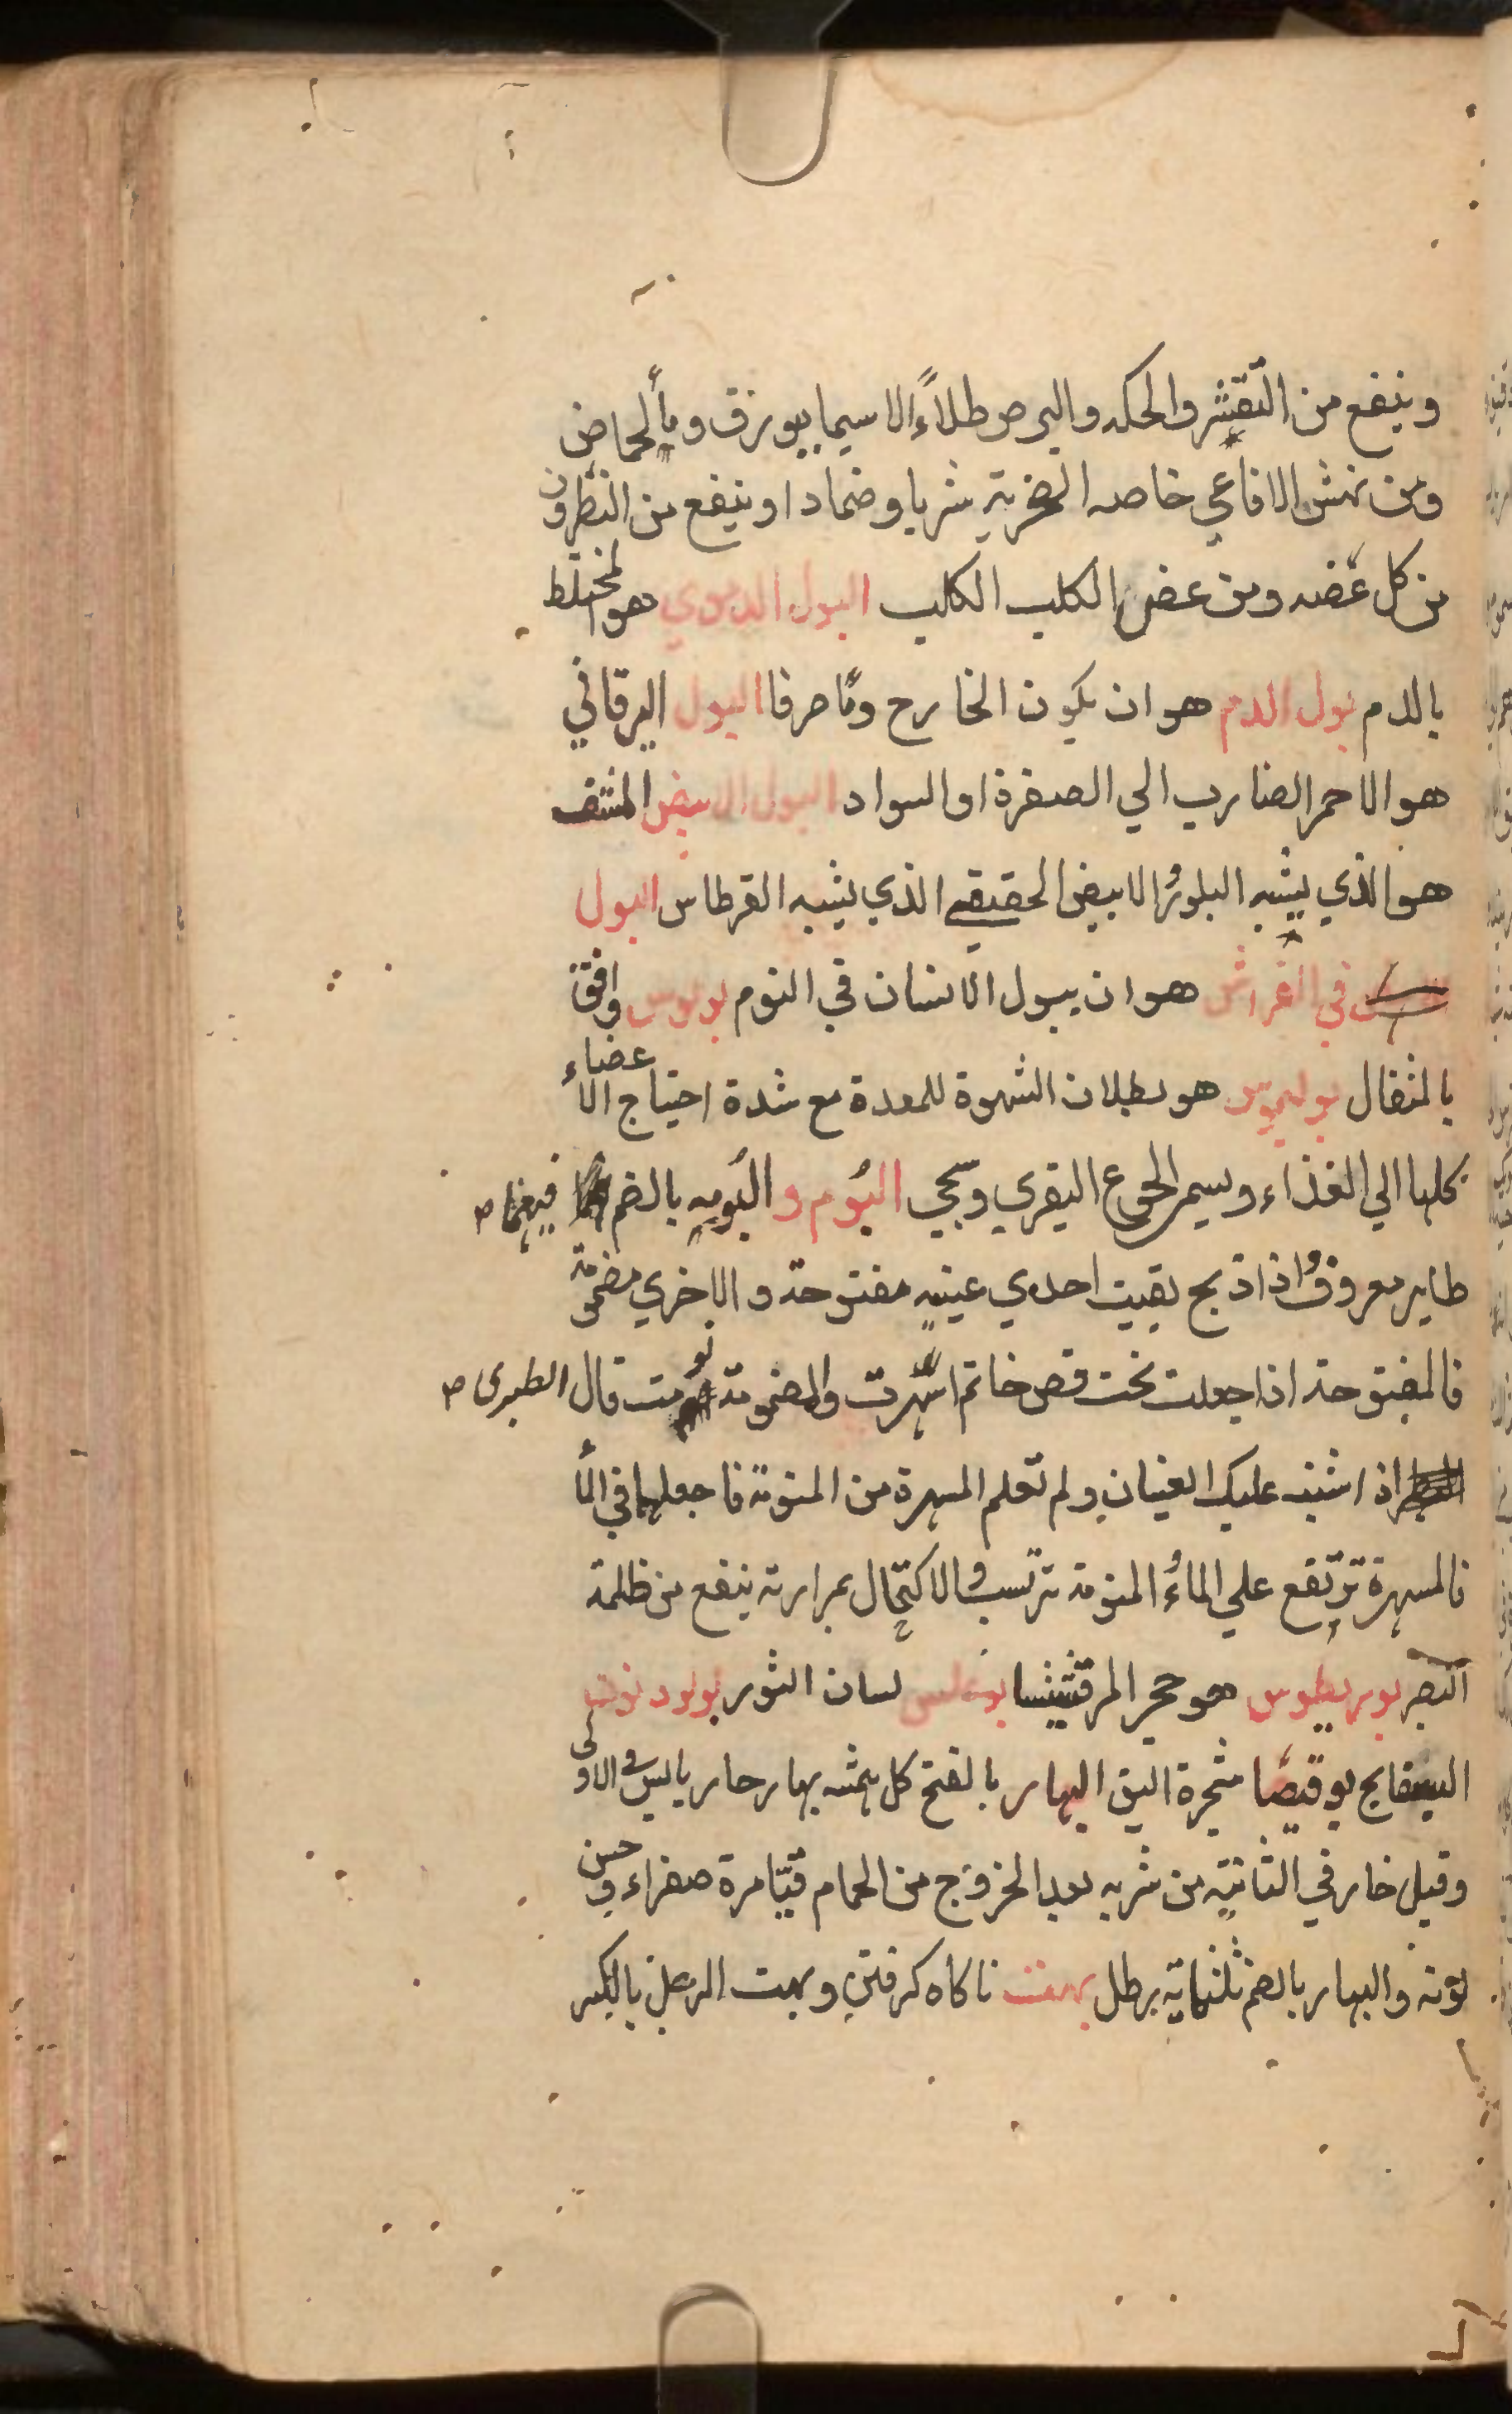 وينفع من التقشر والحكه والبرص طلاءً الا سيما ببورق ومأ الحماض
ومن نهش الافاعي خاصه الصخرية شربا وضمادا وينفع من النطرون
من كل عضه ومن عض الكلب الكلب البول الدموي هو المختلط
بالدم بول الدم هو ان يكون الخارج دمًا صرفا البول اليرقاني
هو الاحمر الضارب الي الصفرة او السواد البول الابيض المشف
هو الذي يشبه البلور الابيض الحقيقي الذي يشبه القرطاس البول
في الفراش هو ان يبول الانسان في النوم بولوس وافق
بالمثقال بوليموس هو بطلان الشهوة للمعدة مع شدة احتياج الاعضاء
كلها الي الغذاء ويسمي الجوع البقري وسجي البُوم والبُومه بالضم فيهما ص
طاير معروف اذا ذبح بقيت احدي عينيه مفتوحة والاخري مضمومة
فالمفتوحة اذا جعلت تحت فص خاتم اسهرت والمضمومة نومت قال الطبرى ص
اذا اشتبه عليك العينان ولم تعلم المسهرة من المنومة فاجعلهما في المأ
فالمسهرة ترتفع علي الماء والمنومة ترتسب والاكتحال بمرارته ينفع من ظلمة
البصر بوريطوس هو حجر المرقشيثا بوغلس لسان الثور بولوديون
البسفايج بوقيصا شجرة البق البهار بالفتح كل شه بهار حار يابس في الاولى
وقيل حار في الثانية من شربه بعد الخروج من الحمام قيّا مرة صفراء وحسن
لونه والبهار بالضم ثلثماية رطل بهت ناكاه كرفتن وبهت الرجل بالكسر